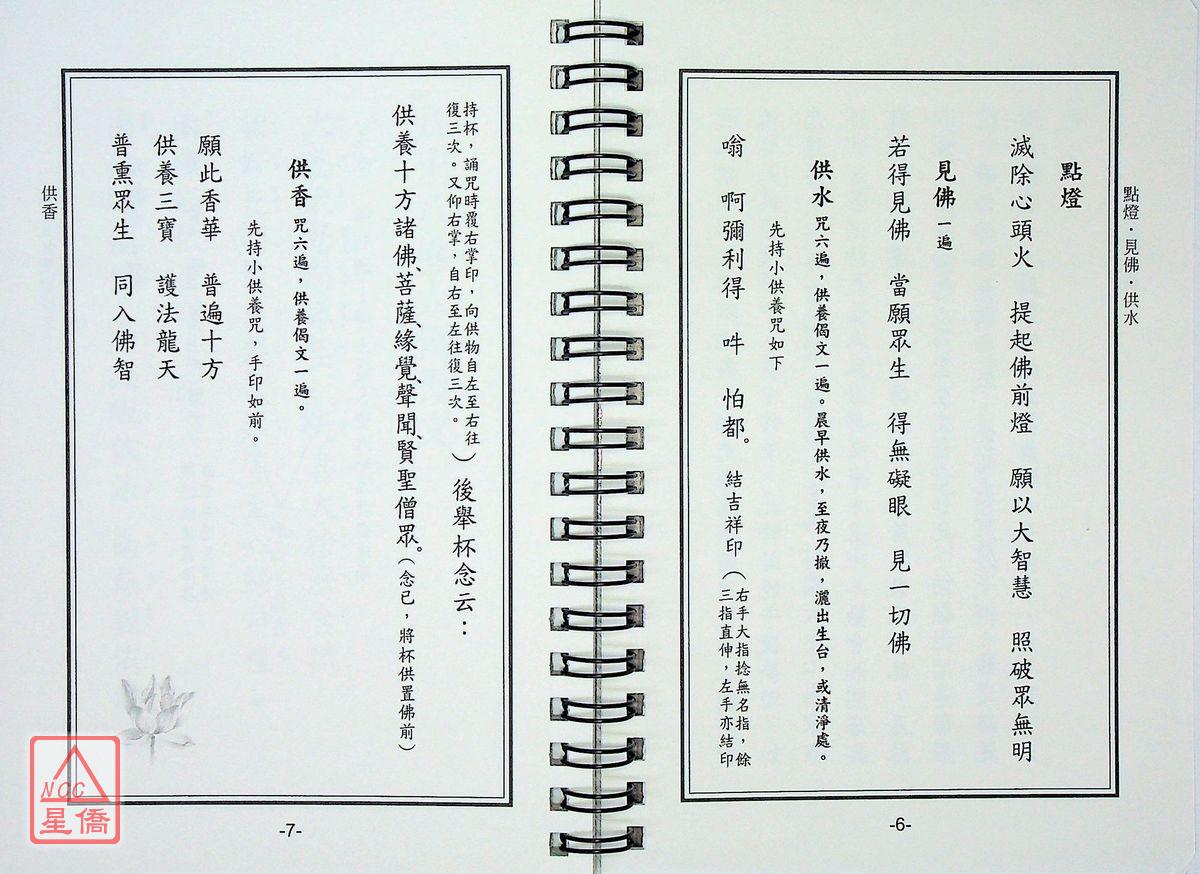 點燈．見佛．供水
點燈
滅除心頭火　提起佛前燈　願以大智慧　照破眾無明
見佛 一遍
若得見佛　當願眾生　得無礙眼　見一切佛
供水 咒六遍，供養偈文一遍。晨早供水，至夜乃撤，灑出生台，或清淨處。
先持小供養咒如下
嗡　啊彌利得　吽　怕都。　結吉祥印（右手大指捻無名指，餘
三指直伸，左手亦結印
-6-
持杯，誦咒時覆右掌印，向供物自左至右往
復三次。又仰右掌，自右至左往復三次。）後舉杯念云：
供養十方諸佛、菩薩、緣覺、聲聞、賢聖僧眾。（念已，將杯供置佛前）
供香 咒六遍，供養偈文一遍。
先持小供養咒，手印如前。
願此香華　普遍十方
供養三寶　護法龍天
普熏眾生　同入佛智
供香
-7-
NCC
星僑